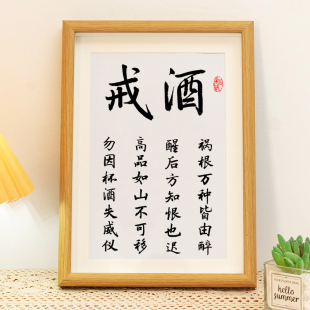 戒酒
祸根万种皆由醉
醒后方知恨也迟
高品如山不可移
勿因杯酒失威仪
hello
summer